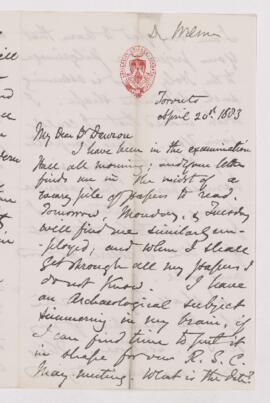 D Wilson
Toronto
April 20th 1883
My Dear Dr Dawson
I have been in the examination
Hall all morning; and your letter
finds me in the midst of a
weary pile of papers to read.
Tomorrow, Monday, & Tuesday
will find me similarly em-
ployed; and when I shall
get through all my papers I
do not know. I have
an Archaeological subject
simmering in my brain, if
I can find time to put it
in shape for our R.S.C.
May meeting. What is the date?